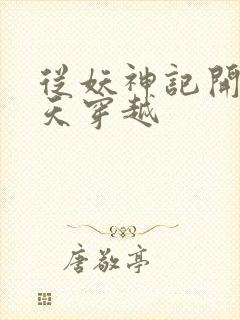 從妖神記開
天穿越
唐敬亭